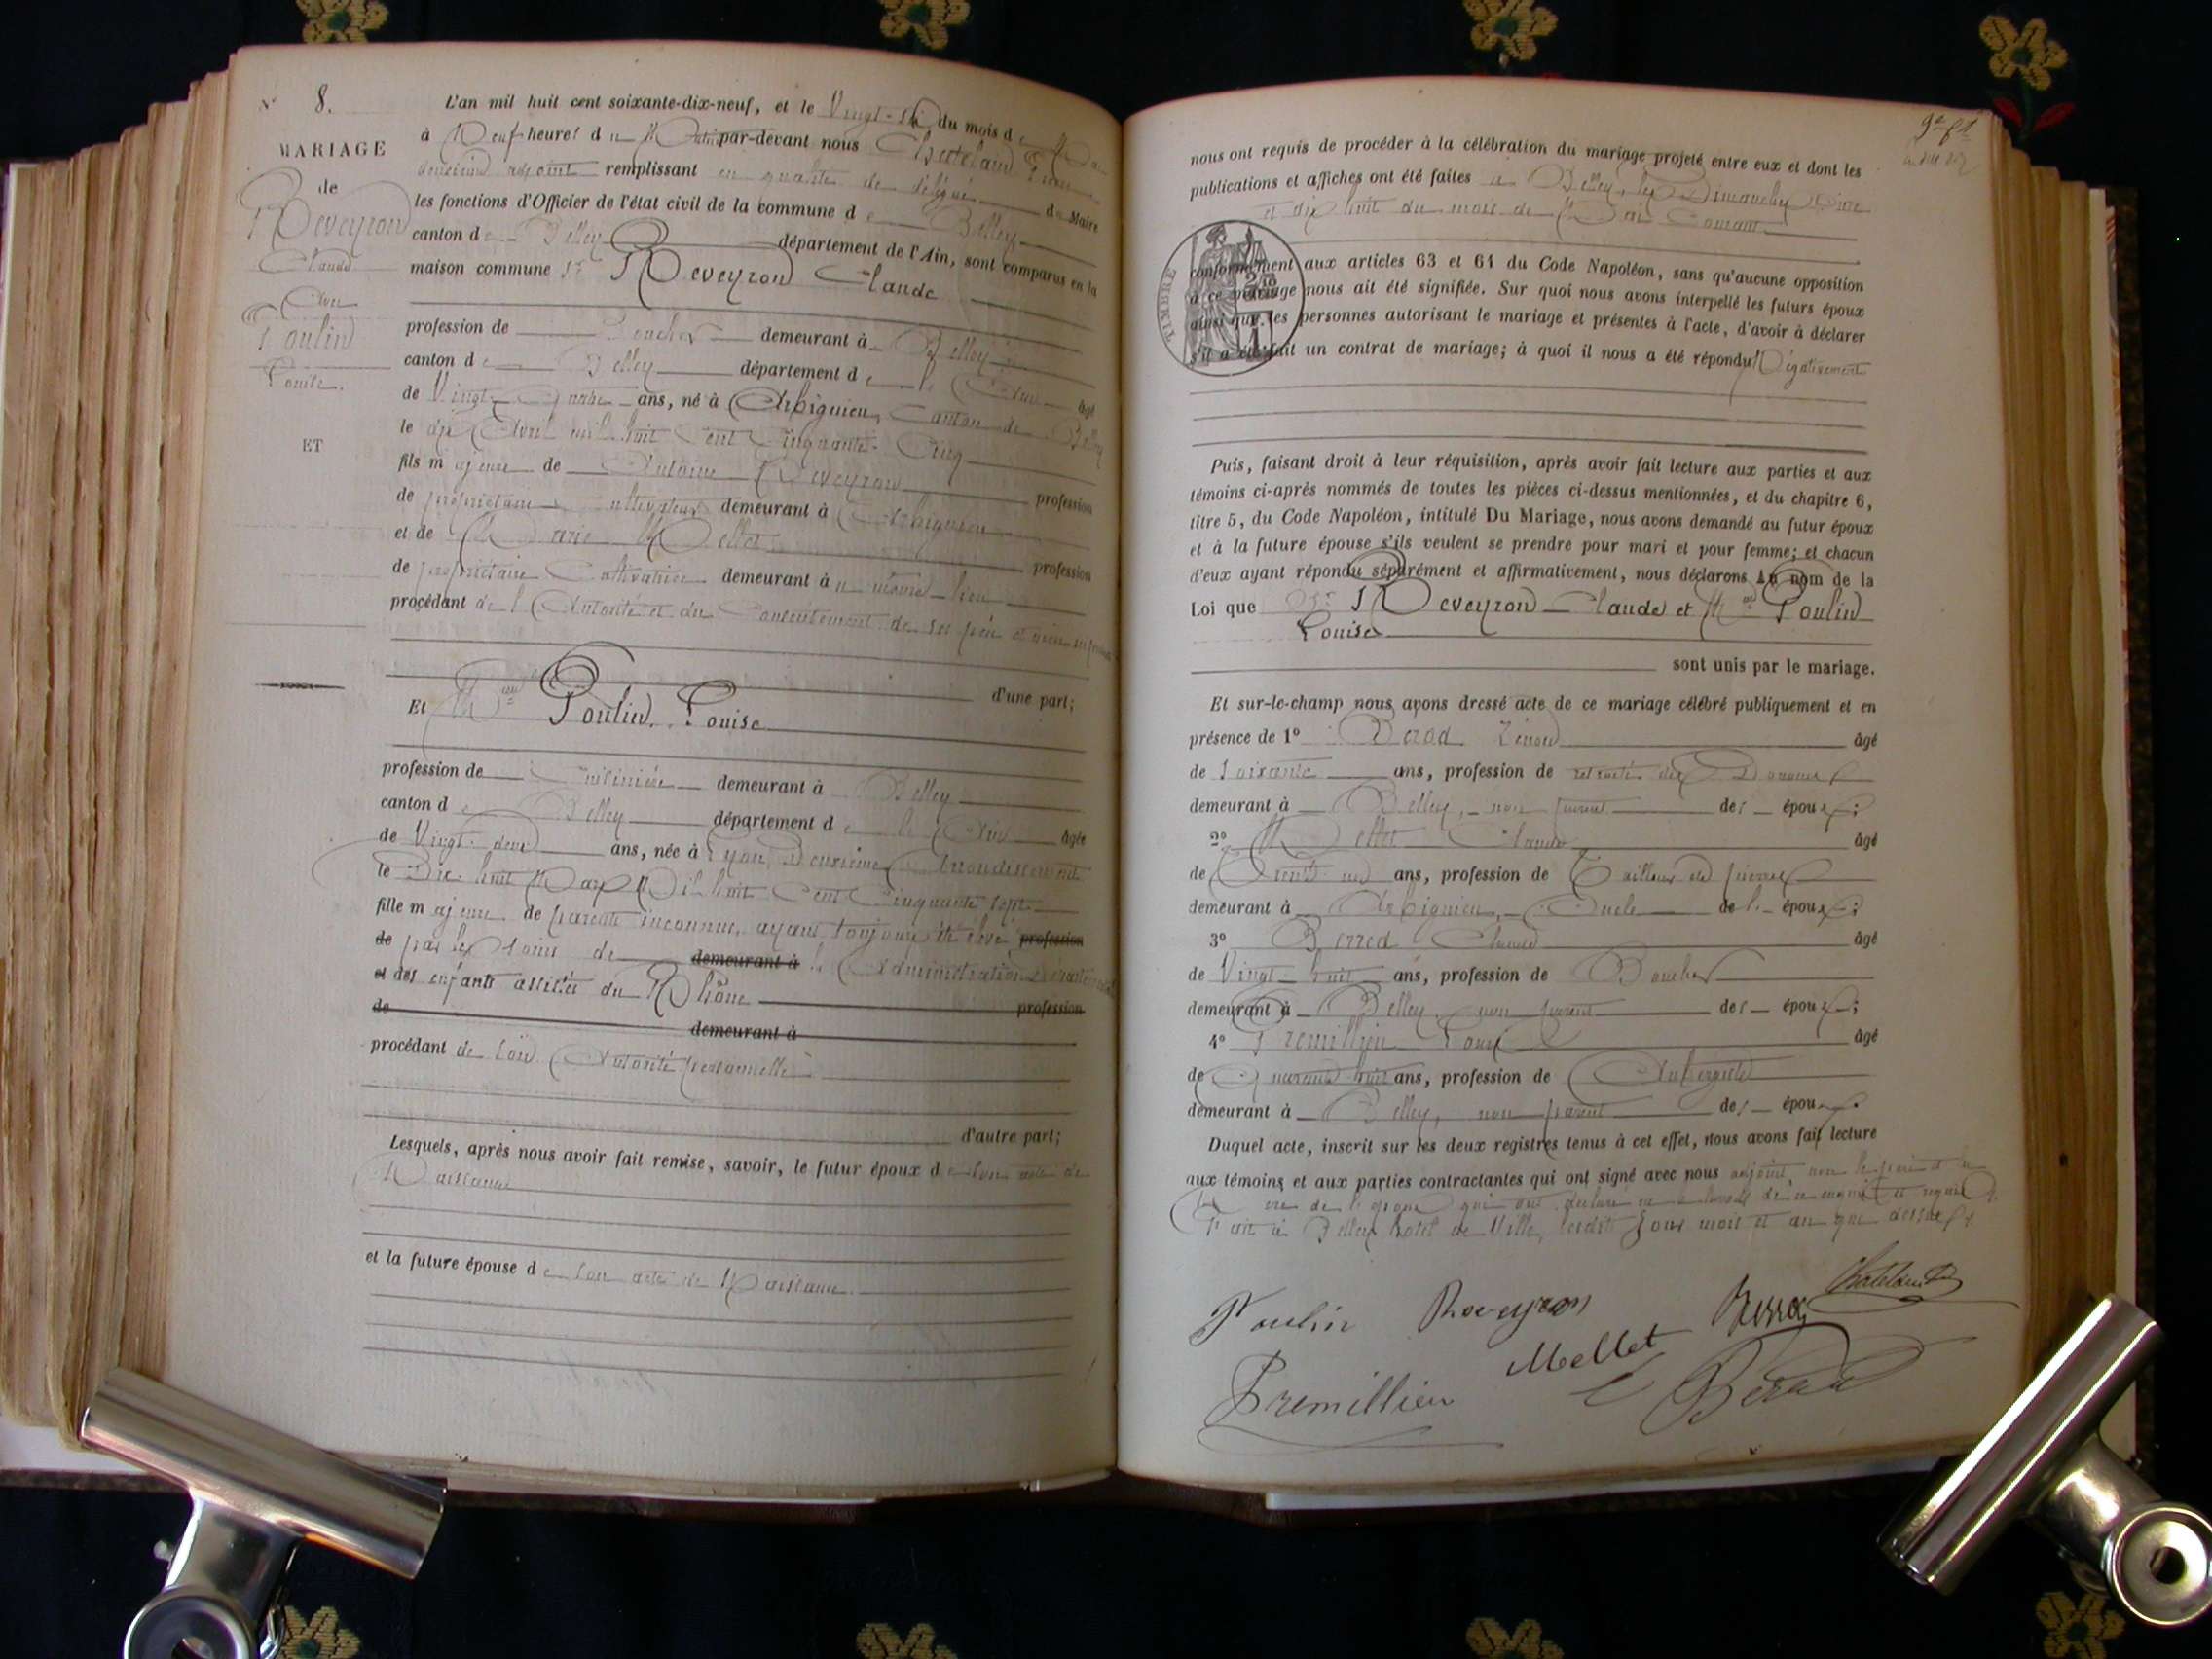 N° 8.
MARIAGE
de
Reveyron
Claude
Avec
Poulin
Louise.
ET
L'an mil huit cent soixante-dix-neuf, et le Vingt-six du mois de Mai
à Neuf heures du Matin par-devant nous Chatelain
deuxième adjoint remplissant en qualité de délégué du Maire
les fonctions d'Officier de l'état civil de la commune de Belley
canton de Belley département de l'Ain, sont comparus en la
maison commune Sr Reveyron Claude
profession de Boucher demeurant à Belley
canton de Belley département de l'Ain âgé
de Vingt-quatre ans, né à Arbignieu, Canton de Belley
le dix Avril mil huit Cent Cinquante-Cinq
fils majeur de Antoine Reveyron profession
de propriétaire Cultivateur demeurant à Arbignieu
et de Marie Mellet profession
de propriétaire Cultivatrice demeurant à même lieu
procédant de l'Autorité et du Consentement de ses père et mère
d'une part;
Et Melle Poulin Louise
profession de Cuisinière demeurant à Belley
canton de Belley département de l'Ain âgée
de Vingt-deux ans, née à Lyon, Deuxième Arrondissement
le Dix-huit Mars Mil huit Cent Cinquante sept
fille majeure de parents inconnus, ayant toujours été élevé profession
de par les soins de demeurant à l'Administration
et des enfants assistés du Rhône
de demeurant à profession
procédant de son Autorité personnelle
d'autre part;
Lesquels, après nous avoir fait remise, savoir, le futur époux de son acte de
Naissance
et la future épouse de son acte de Naissance.
nous ont requis de procéder à la célébration du mariage projeté entre eux et dont les
publications et affiches ont été faites à Belley, les Dimanches Onze
et dix huit du mois de Mai Courant
TIMBRE
conformément aux articles 63 et 64 du Code Napoléon, sans qu'aucune opposition
à ce mariage nous ait été signifiée. Sur quoi nous avons interpellé les futurs époux
ainsi que les personnes autorisant le mariage et présentes à l'acte, d'avoir à déclarer
s'il a été fait un contrat de mariage; à quoi il nous a été répondu Négativement
Puis, faisant droit à leur réquisition, après avoir fait lecture aux parties et aux
témoins ci-après nommés de toutes les pièces ci-dessus mentionnées, et du chapitre 6,
titre 5, du Code Napoléon, intitulé Du Mariage, nous avons demandé au futur époux
et à la future épouse s'ils veulent se prendre pour mari et pour femme; et chacun
d'eux ayant répondu séparément et affirmativement, nous déclarons au nom de la
Loi que Sr Reveyron Claude et Melle Poulin
Louise
sont unis par le mariage.
Et sur-le-champ nous avons dressé acte de ce mariage célébré publiquement et en
présence de 1° Berod Zénon âgé
de Soixante ans, profession de retraité des Douanes
demeurant à Belley, non parent des époux;
2° Mellet Claude âgé
de Trente neuf ans, profession de Tailleur de pierres
demeurant à Arbignieu, Oncle de l'époux;
3° Berred Claude âgé
de Vingt-huit ans, profession de Boucher
demeurant à Belley, non parent des époux;
4° Fremillieu Louis âgé
de Quarante huit ans, profession de Aubergiste
demeurant à Belley, non parent des époux.
Duquel acte, inscrit sur les deux registres tenus à cet effet, nous avons fait lecture
aux témoins et aux parties contractantes qui ont signé avec nous adjoint, non le père et la
Mère de l'époux qui ont déclaré ne le savoir de ce enquis et requis
Fait à Belley hôtel de Ville, lesdits Jour mois et an que dessus
Poulin Reveyron Chatelain
Mellet
Fremillieu Bérod